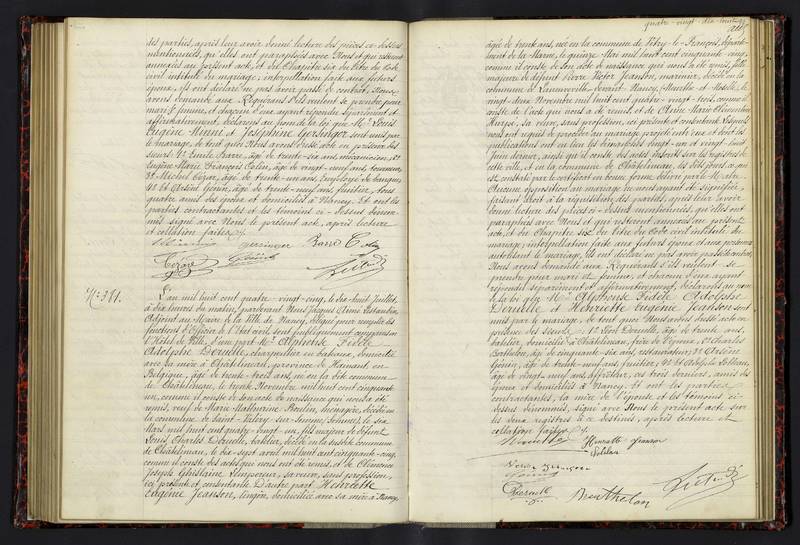 des parties, après leur avoir donné lecture des pièces ci-dessus
mentionnées, qu'elles ont paraphées avec Nous et qui resteront
annexées au présent acte, et du Chapitre six du titre du Code
civil intitulé du mariage; interpellation faite aux futurs
époux, ils ont déclaré ne pas avoir passé de contrat; Nous
avons demandé aux Requérants s'ils veulent se prendre pour
mari et femme, et chacun d'eux ayant répondu séparément et
affirmativement, déclarons au nom de la loi que Mr Louis
Eugène et Joséphine Gersinger sont unis par
le mariage, de tout quoi Nous avons dressé acte en présence des
sieurs 1° Emile Barré, âgé de trente-six ans, mécanicien, 2°
Eugène Marie François Colin, âgé de vingt-neuf ans, tourneur,
3° Michel Cézar, âgé de trente-un ans, Employé de banque,
4° Et Arsène Génin, âgé de trente-neuf ans, fruitier, tous
quatre amis des époux et domiciliés à Nancy. Et ont les
parties contractantes et les témoins ci-dessus dénom-
més signé avec Nous le présent acte, après lecture
et collation faites.
gersinger Barré Colin
Cézar Génin
N° 381.
L'an mil huit cent quatre-vingt-cinq, le dix-huit Juillet,
à dix heures du matin, pardevant Nous Jacques
Adjoint au Maire de la Ville de Nancy, délégué pour remplir les
fonctions d'Officier de l'Etat civil, sont publiquement comparus en
l'Hôtel de Ville, d'une part Mr Alphonse Fidèle
Adolphe Deruelle, charpentier en bateaux, domicilié
avec sa mère à Châtelineau, province de Hainaut, en
Belgique, âgé de trente-trois ans, né en la dite commune
de Châtelineau, le trente Novembre mil huit cent cinquante-
un, comme il conste de son acte de naissance qui nous a été
remis, veuf de Marie Mathurine Boutin, ménagère, décédée en
la commune de Saint-Valery-sur-Somme, Somme, le six
Mars mil huit cent quatre-vingt-un, fils majeur de défunt
Louis Charles Deruelle, batelier, décédé en la susdite commune
de Châtelineau, le dix-sept avril mil huit cent cinquante-cinq,
comme il conste des actes que nous ont été remis, et de Clémence
Joseph Ghislaine Lempereur, sa veuve, sans profession,
ici présente et consentante. D'autre part Henriette
Eugénie Jeanson, lingère, domiciliée avec sa mère à Nancy,
quatre-vingt-dix-huit
âgée de trente ans, née en la commune de Vitry-le-François, départe-
ment de la Marne, le quinze Mai mil huit cent cinquante-cinq,
comme il conste de son acte de naissance qui nous a été remis, fille
majeure de défunt Pierre Victor Jeanson, marinier, décédé en la
commune de Laneuveville-devant-Nancy, Meurthe-et-Moselle, le
vingt-deux Novembre mil huit cent quatre-vingt-trois, comme il
conste de l'acte qui nous a été remis, et de Anne Marie Clémentine
sa veuve, sans profession, ici présente et consentante. Lesquels
nous ont requis de procéder au mariage projeté entr'eux et dont les
publications ont eu lieu les dimanches vingt-un et vingt-huit
Juin dernier, ainsi qu'il conste des actes inscrits sur les registres de
cette ville, et en la commune de Châtelineau,
Aucune opposition au mariage ne nous ayant été signifiée,
faisant droit à la réquisition des parties, après leur avoir
donné lecture des pièces ci-dessus mentionnées, qu'elles ont
paraphées avec Nous et qui resteront annexées au présent
acte, et du Chapitre six du titre du Code civil intitulé du
mariage; interpellation faite aux futurs époux et aux personnes
autorisant le mariage, ils ont déclaré ne pas avoir passé de contrat;
Nous avons demandé aux Requérants s'ils veulent se
prendre pour mari et femme, et chacun d'eux ayant
répondu séparément et affirmativement, déclarons au nom
de la loi que Mr Alphonse Fidèle Adolphe
Deruelle et Henriette Eugénie Jeanson sont
unis par le mariage, de tout quoi Nous avons dressé acte en
présence des sieurs 1° Deruelle, âgé de trente ans,
batelier, domicilié à Châtelineau, frère de l'époux, 2° Charles
Berthelon, âgé de cinquante-six ans, restaurateur, 3° Arsène
Génin, âgé de trente-neuf ans, fruitier,
âgé de vingt-neuf ans, les trois derniers, amis des
époux et domiciliés à Nancy. Et ont les parties
contractantes, la mère de l'épouse et les témoins ci-
dessus dénommés, signé avec Nous le présent acte sur
les deux registres à ce destinés, après lecture et
collation faites.
Deruelle Henriette Jeanson
Génin
Deruelle Berthelon